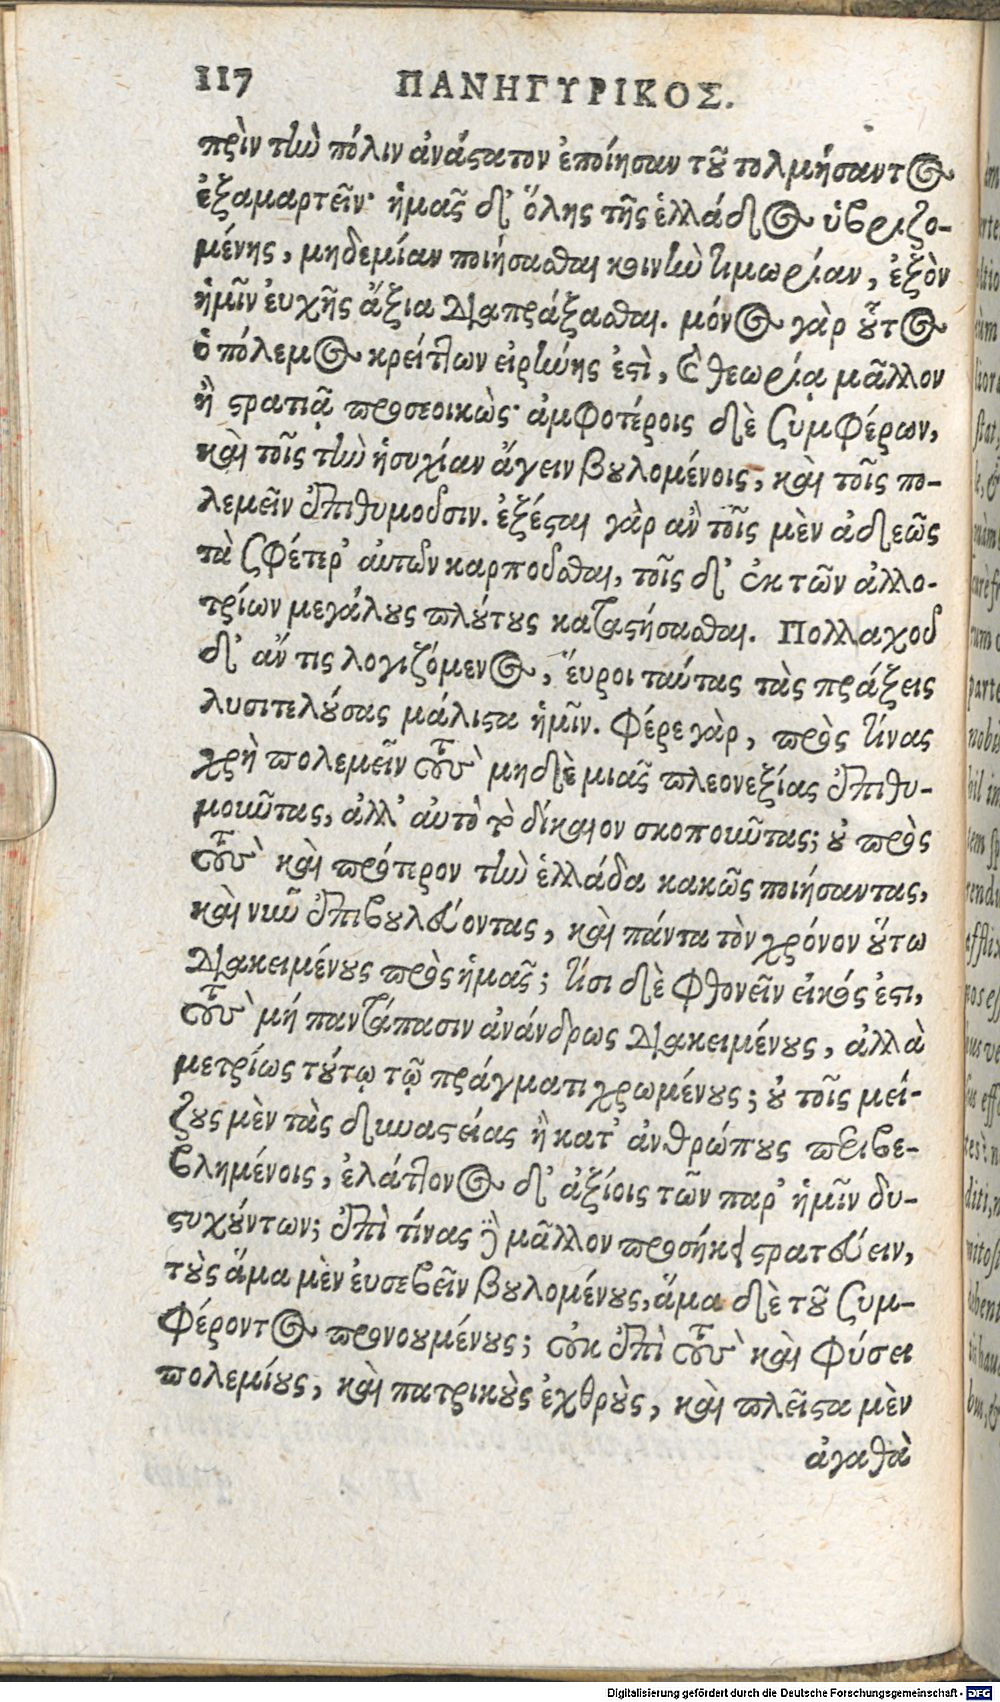 117 ΠΑΝΗΓΥΡΙΚΟΣ.
πρὶν τὴν πόλιν ἀνάςατον ἐποίησαν τοῦ τολμήσαντος
ἐξαμαρτεῖν· ἡμᾶς δ' ὅλης τῆς ἑλλάδος ὑβριζο-
μένης, μηδεμίαν ποιήσασθαι κοινὴν τιμωρίαν, ἐξὸν
ἡμῖν ἐυχῆς ἄξια διαπράξασθαι. μόνος γὰρ οὗτος
ὁ πόλεμος κρείττων εἰρήνης ἐςὶ, καὶ θεωρίᾳ μᾶλλον
ἢ ςρατιᾷ προσεοικὼς· ἀμφοτέροις δὲ συμφέρων,
καὶ τοῖς τὴν ἡσυχίαν ἄγειν βουλομένοις, καὶ τοῖς πο-
λεμεῖν ἐπιθυμοῦσιν. ἐξέςαι γὰρ ἂν τοῖς μὲν ἀδεῶς
τὰ σφέτερ' ἀυτῶν καρποῦσθαι, τοῖς δ' ἐκ τῶν ἀλλο-
τρίων μεγάλους πλούτους καταςήσασθαι. Πολλαχοῦ
δ' ἄν τις λογιζόμενος, ἕυροι ταύτας τὰς πράξεις
λυσιτελούσας μάλιςα ἡμῖν. φέρε γὰρ, πρὸς τίνας
χρὴ πολεμεῖν τοὺς μηδὲ μιᾶς πλεονεξίας ἐπιθυ-
μοῦντας, ἀλλ' ἀυτὸ τὸ δίκαιον σκοποῦντας; οὐ πρὸς
τοὺς καὶ πρότερον τὴν ἑλλάδα κακῶς ποιήσαντας,
καὶ νῦν ἐπιβουλεύοντας, καὶ πάντα τὸν χρόνον οὕτω
διακειμένους πρὸς ἡμᾶς; τίσι δὲ φθονεῖν εἰκός ἐςι,
τοὺς μή παντάπασιν ἀνάνδρως διακειμένους, ἀλλὰ
μετρίως τούτῳ τῷ πράγματι χρωμένους; οὐ τοῖς μεί-
ζους μὲν τὰς δυναςείας ἢ κατ' ἀνθρώπους περιβε-
βλημένοις, ἐλάττονος δ' ἀξίοις τῶν παρ' ἡμῖν δυ-
ςυχούντων; ἐπὶ τίνας δὲ μᾶλλον προσήκει ςρατεύειν,
τοὺς ἅμα μὲν ἐυσεβεῖν βουλομένους, ἅμα δὲ τοῦ συμ-
φέροντος προνοουμένους; οὐκ ἐπὶ τοὺς καὶ φύσει
πολεμίους, καὶ πατρικοὺς ἐχθροὺς, καὶ πλεῖςα μὲν
ἀγαθὰ
Digitalisierung gefördert durch die Deutsche Forschungsgemeinschaft - DFG